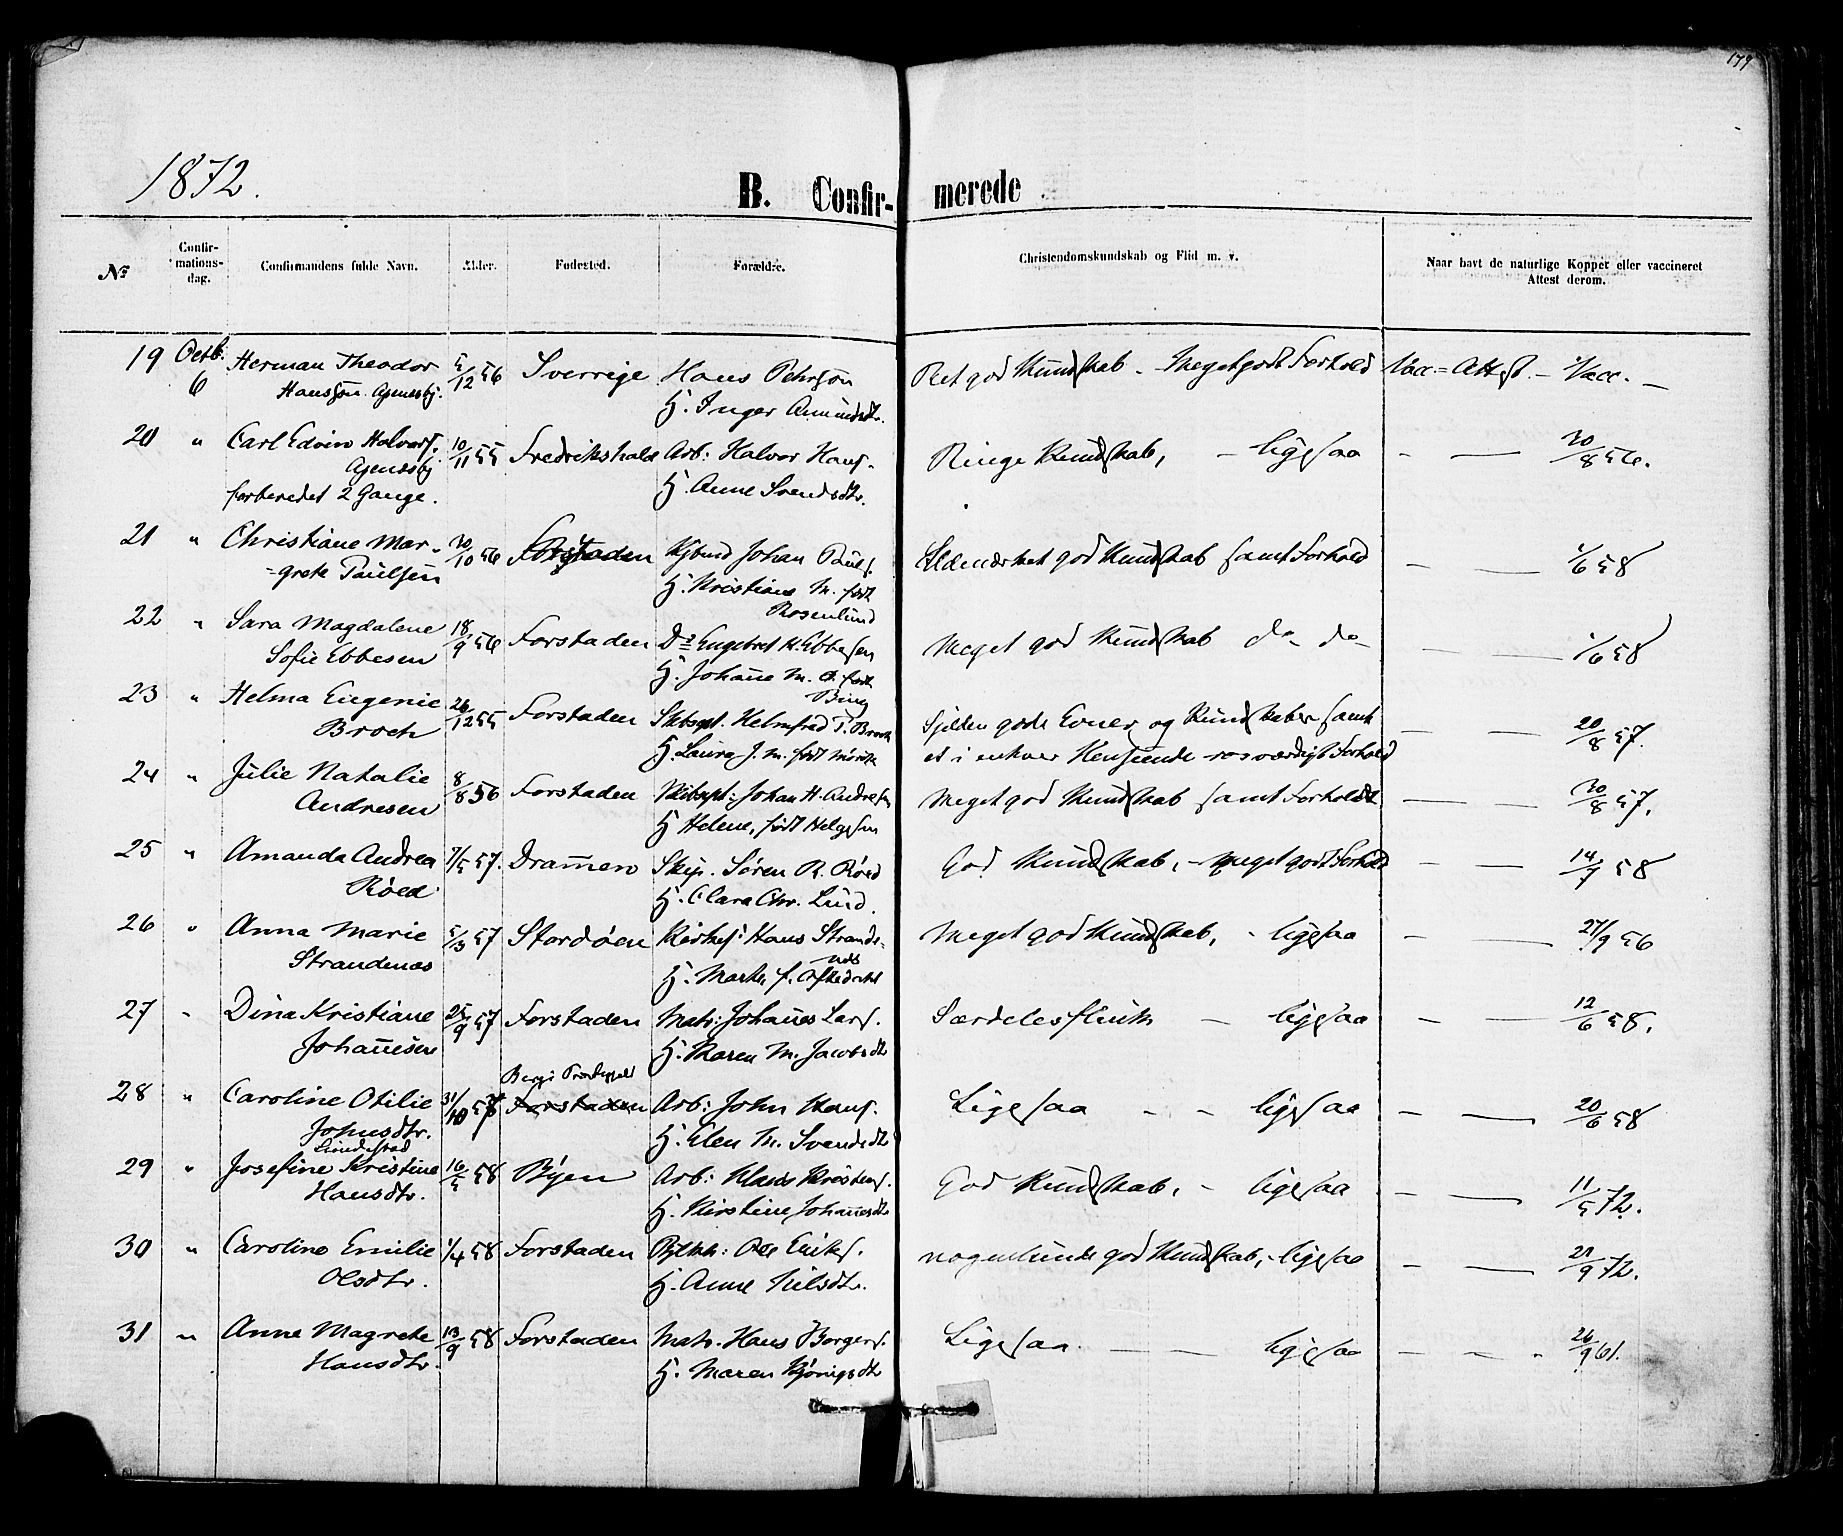 179
1872.
B. Confir-merede
No
Confir-
mations-
dag.
Confirmandens fulde Navn.
Alder.
Fødested.
Forældre.
Christendomskundskab og Flid m. v.
Naar havt de naturlige Kopper eller vaccineret
Attest derom.
19 Octb. Herman Theodor 5/12 56 Sverrige Hans Pehrsøn Ret god Kundskab - Meget godt Forhold Vacc=Attest. - Vacc. -
6 Hansøn. H. Inger Amundsdtr.
20 " Carl Edvin Halvors. 10/11 55 Fredrikshald Arb: Halvor Hans. Ringe Kundskab, - ligesaa - — 30/8 56.
H. Anne Svendsdtr.
forberedet 2 Gange.
21 " Christiane Mar- 30/10 56 Forstaden Johan Pauls. god Kundskab samt Forhold - — 1/6 58
=grete Paulsen H. Kristiane M. født
Rosenlund
22 " Sara Magdalene 18/9 56 Forstaden Do Engebret K. Ebbesen Meget god Kundskab do do - — 1/6 58
Sofie Ebbesen H. Johanne M. født
23 " Helma Eugenie 26/12 55 Forstaden Skibscpt. Helmfred T. Broch Sjelden gode Evner og Kundskaber samt - — 20/8 57.
Broch H. Laura J. M. født et i enhver Henseende rosværdigt Forhold
24 " Julie Natalie 8/8 56 Forstaden Skibscpt: Johan H. Andresen Meget god Kundskab samt Forhold - — 30/8 57.
Andresen H Helene, født Helgesen
25 " Amanda Andrea 7/5 57. Dramen Skip. Søren R. Røed God Kundskab, - meget godt Forhold - — 14/7 58
Røed H. Clara Chr. Lund.
26 " Anna Marie 5/3 57 Stordøen Kirkes: Hans Strande- Meget god Kundskab, - ligesaa - — 27/9 56
Strandenæs næs
H. Marte, f.
27 " Dina Kristiane 25/9 57 Forstaden Matr: Johannes Lars. Særdeles flink - ligesaa - — 12/6 58.
Johannesen H. Karen M. Jacobsdtr
28 " Caroline Otilie 31/10 57 Forstaden Arb: John Hans. Ligesaa - - ligesaa - — 20/6 58
Johnsdtr. H. Elen M. Svendsdtr
29 " Josefine Kristine 16/5 58 Byen Arb: God Kundskab, - ligesaa - — 11/5 72.
Hansdtr. H. Kirstine Johannesdtr
30 " Caroline Emilie 1/4 58 Forstaden Ole Eriks. nogenlunde god Kundskab, - ligesaa - — 21/9 72.
Olsdtr. H. Anne Nilsdtr.
31 " Anne Magrete 13/9 58 Forstaden Matr. Hans Borgers. Ligesaa. - - ligesaa - - " 26/9 61.
Hansdtr. H. Maren